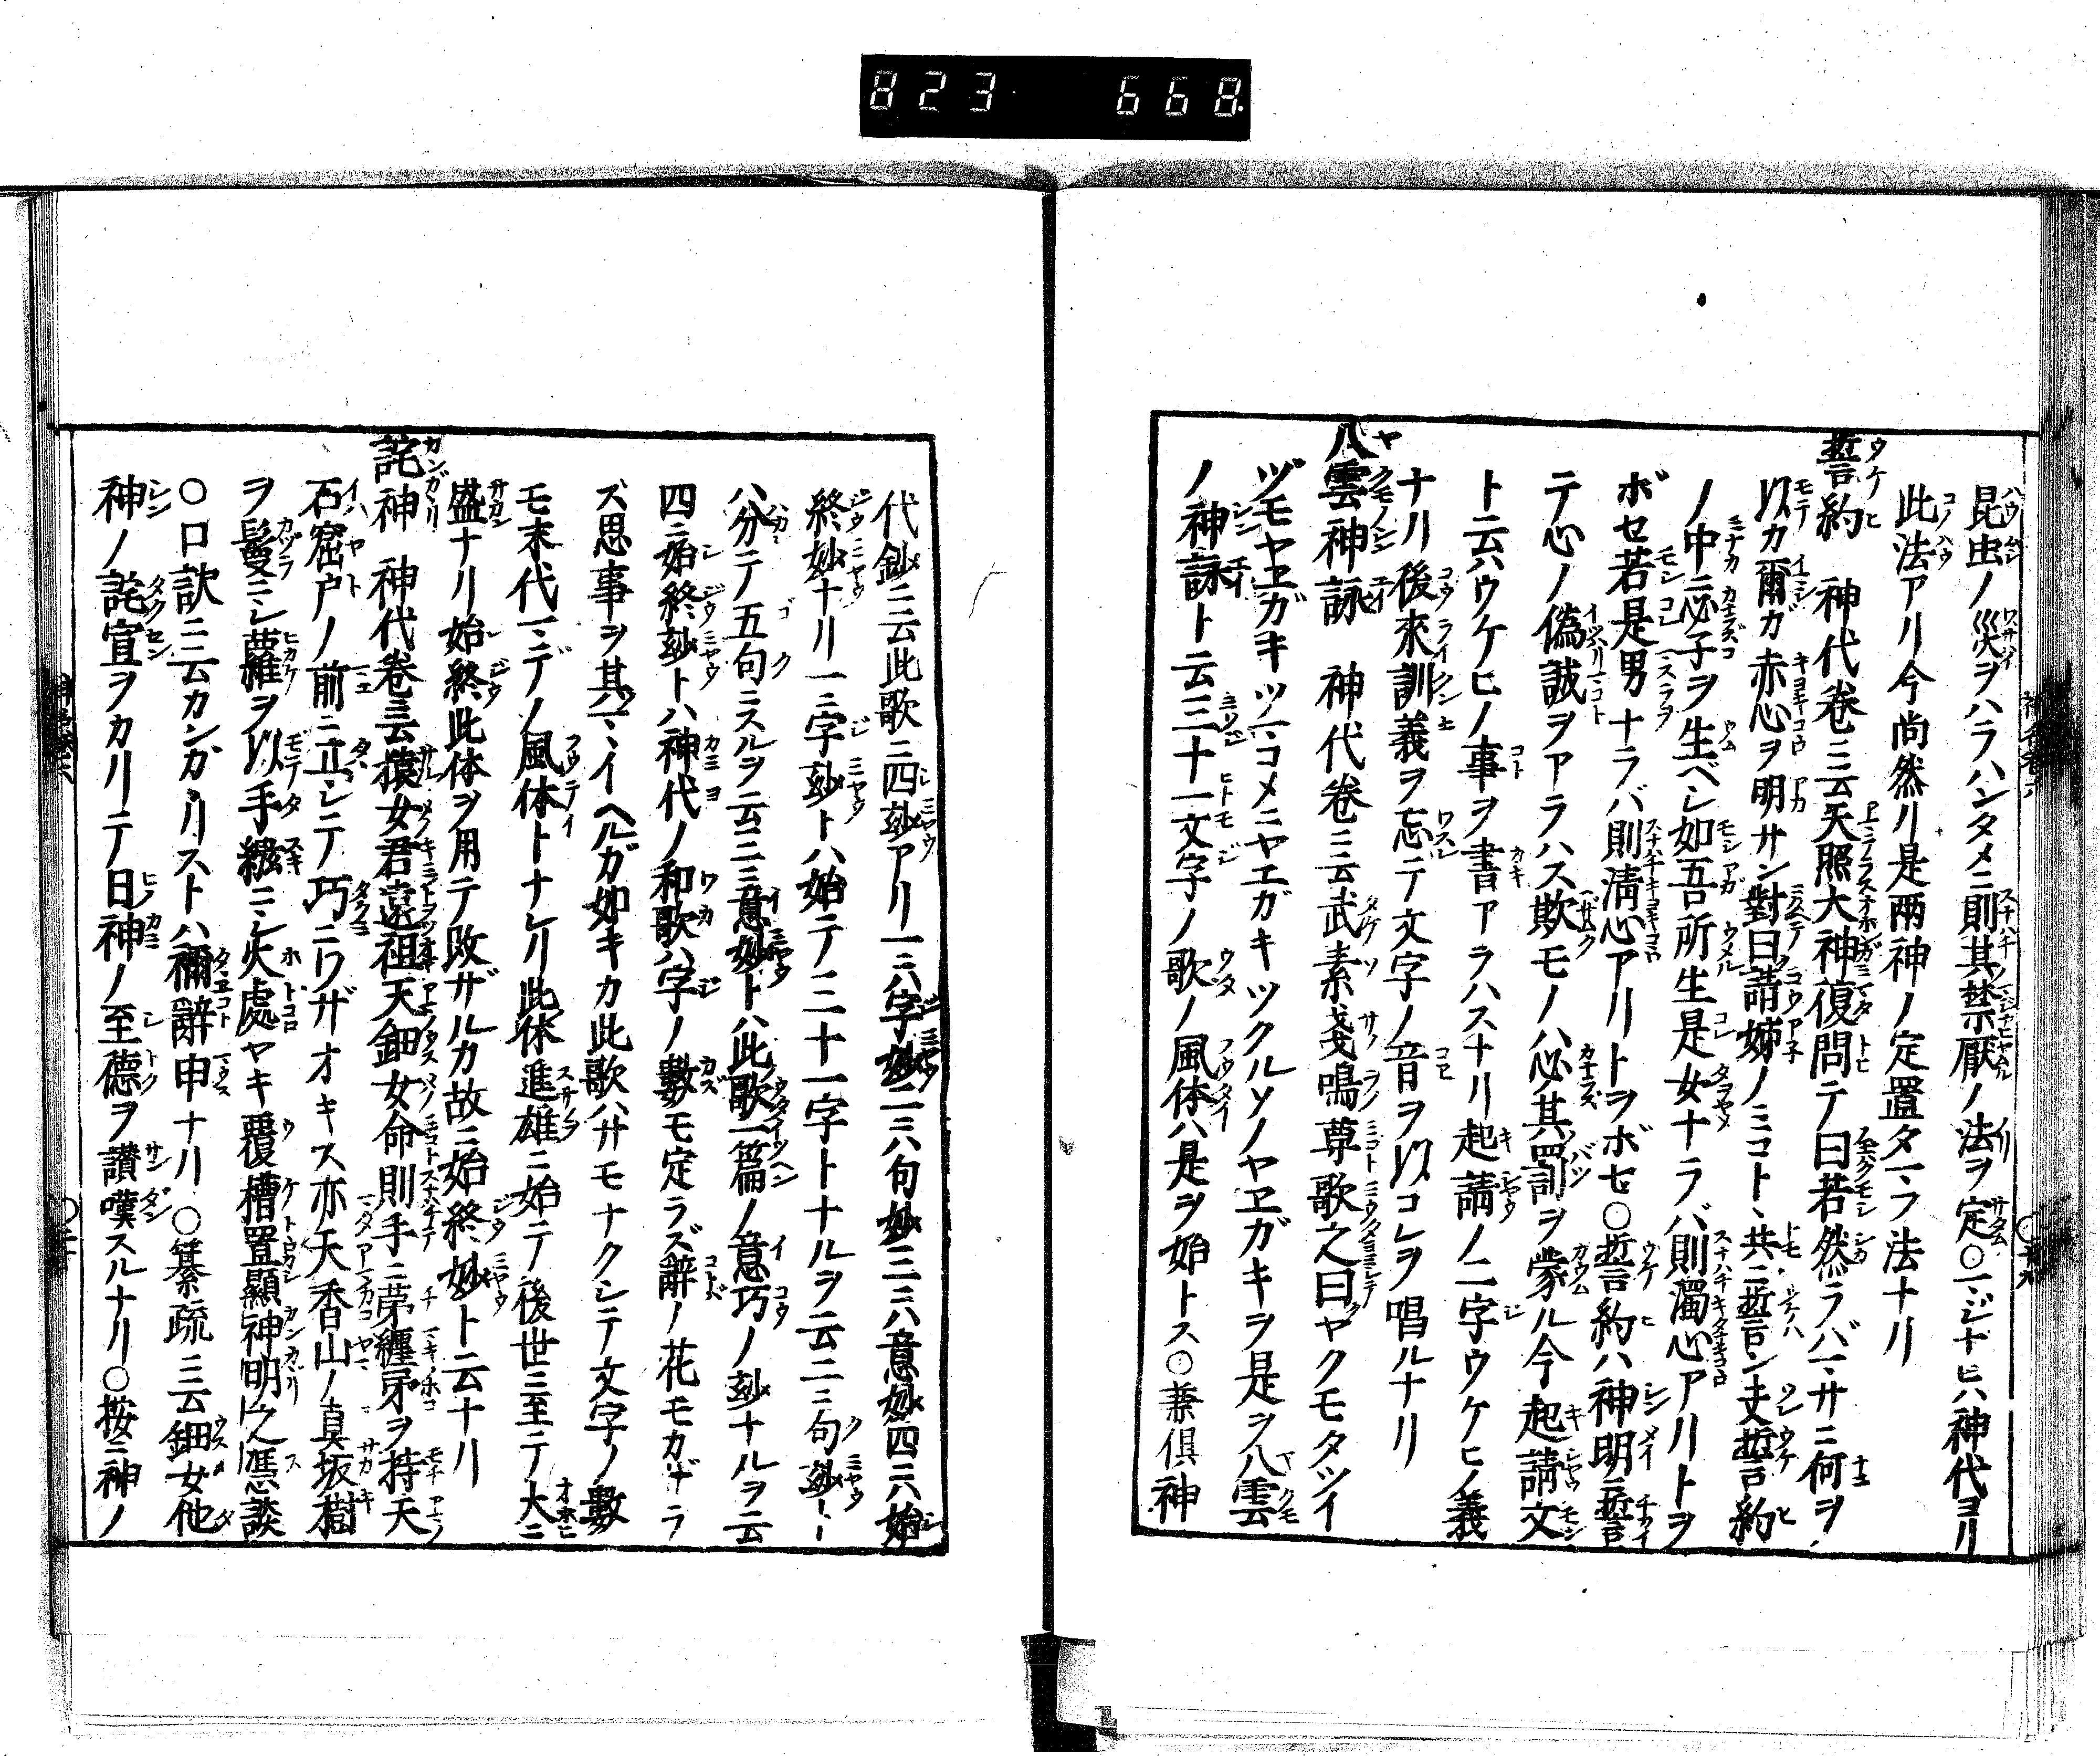 823 668
昆虫ノ災ヲハラハンタメニ則其禁厭ノ法ヲ定○マジナヒハ神代ヨリ
此法アリ今尚然リ是兩神ノ定置タマフ法ナリ
誓約 神代卷ニ云天照大神復問テ曰若然ラバマサニ何ヲ
以カ爾ガ赤心ヲ明サン對曰請姊ノミコト、共ニ誓ン夫誓約
ノ中ニ必子ヲ生ベシ如吾所生是女ナラバ則濁心アリトヲ
ボセ若是男ナラバ則淸心アリトヲボセ○誓約ハ神明ニ誓
テ心ノ偽誠ヲアラハス欺モノハ必ス其罰ヲ蒙ル今起請文
ト云ハウケヒノ事ヲ書アラハスナリ起請ノ二字ウケヒノ義
ナリ後來訓義ヲ忘テ文字ノ音ヲ以コレヲ唱ルナリ
八雲神詠 神代卷ニ云武素戔鳴尊歌之曰ヤクモタツイ
ヅモヤヱガキツマコメニヤエガキツクルソノヤヱガキヲ是ヲ八雲
ノ神詠ト云三十一文字ノ歌ノ風体ハ是ヲ始トス○兼俱神
代鈔ニ云此歌ニ四妙アリ一ニハ字妙二ニハ句妙三ニハ意妙四ニハ始
終妙ナリ一ニ字妙トハ始テ三十一字トナルヲ云二ニ句妙ト、
ハ分テ五句ニスルヲ云三ニ意妙トハ此歌一篇ノ意巧ノ妙ナルヲ云
四ニ始終妙トハ神代ノ和歌ハ字ノ數モ定ラズ辭ノ花モカザラ
ズ思事ヲ其マ、イヘルガ如キカ此歌ハサモナクシテ文字ノ數
モ末代マデノ風体トナレリ此体進雄ニ始テ後世ニ至テ大ニ
盛ナリ始終此体ヲ用テ敗ザルカ故ニ始終妙ト云ナリ
託神 神代卷ニ云猿女君遠祖天鈿女命則手ニ茅纏矛ヲ持天
石窟戸ノ前ニ立シテ巧ニワザオキス亦天香山ノ真坂樹
ヲ鬘ニシ蘿ヲ以手繦ニシ火處ヤキ覆槽置顯神明之憑談
○口訣ニ云カンガヽリストハ禰辭申ナリ○纂疏ニ云鈿女他
神ノ託宣ヲカリテ日神ノ至德ヲ讃嘆スルナリ○按ニ神ノ